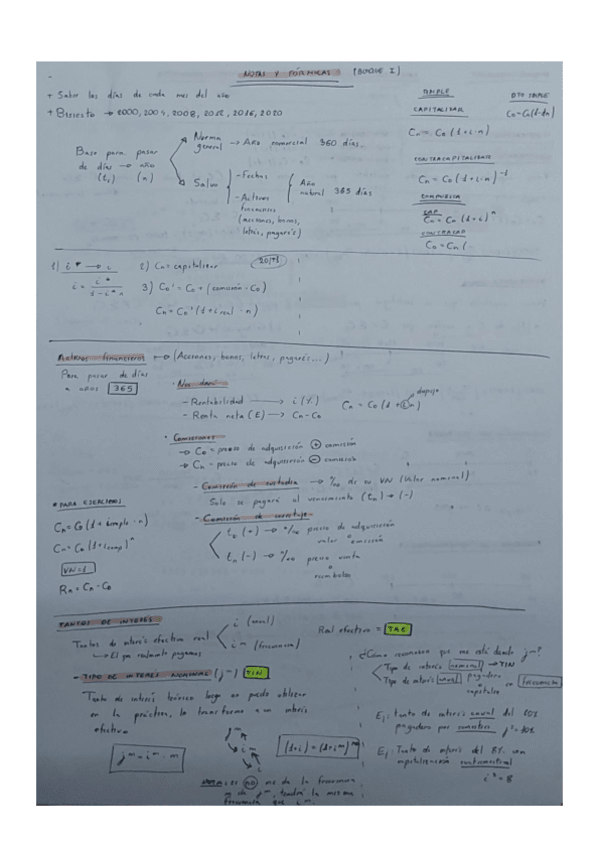 NOTAS Y FÓRMULAS (BLOQUE I)
+ Saber los días de cada mes del año
+ Bisiesto → 2000, 2004, 2008, 2012, 2016, 2020
Base para pasar
de días → años
(tn) (n)
Norma
general → Año comercial 360 días.
Salvo
- Fechas
- Activos
financieros
(acciones, bonos,
letras, pagarés)
Año
natural 365 días
SIMPLE
CAPITALIZAR
Cn = Co (1+i·n)
CONTRACAPITALIZAR
Cn = Co (1+i·n)^-1
COMPUESTA
CAP
Cn = Co (1+i)^n
CONTRACAP
Co = Cn (
DTO SIMPLE
1) i* → i
2) Cn = capitalizar
3) Co' = Co + (comisión · Co)
Cn = Co' (1+i real · n)
Activos financieros → (Acciones, bonos, letras, pagarés...)
Para pasar de días
a años 365
· Nos dará
- Rentabilidad → i (%)
- Renta neta (E) → Cn - Co
despeja
Cn = Co (1+i·n)
· Comisiones
→ Co = precio de adquisición + comisión
→ Cn = precio de adquisición - comisión
- Comisión de custodia → ‰ de su VN (Valor nominal)
Solo se pagará al vencimiento (tn) → (-)
- Comisión de corretaje
to (+) → ‰ precio de adquisición
valor o emisión
tn (-) → ‰ precio venta
o
reembolso
* PARA EJERCICIOS
Cn = Co (1 + i simple · n)
Cn = Co (1 + i comp)^n
VN = 1
Rn = Cn - Co
TANTOS DE INTERÉS
Tantos de interés efectivo real
i (anual)
i m (frecuencia)
→ El que realmente pagamos
Real efectivo = TAE
- TIPO DE INTERÉS NOMINAL (j m) TIN
Tanto de interés teórico luego no puedo obtener
en la práctica, lo transformo a un interés
efectivo
j m = i m · m
j m
i m
i
(1+i) = (1+i m)^m
NOTA: si NO me da la frecuencia
m de j m, tendrá la misma
frecuencia que i m.
¿Cómo reconozco que me está dando j m?
Tipo de interés nominal → TIN
Tipo de interés anual pagadero
o
capitaliza en frecuencia
Ej: tanto de interés anual del 10%
pagadero por semestres
Ej: Tanto de interés del 8% con
capitalización cuatrimestral